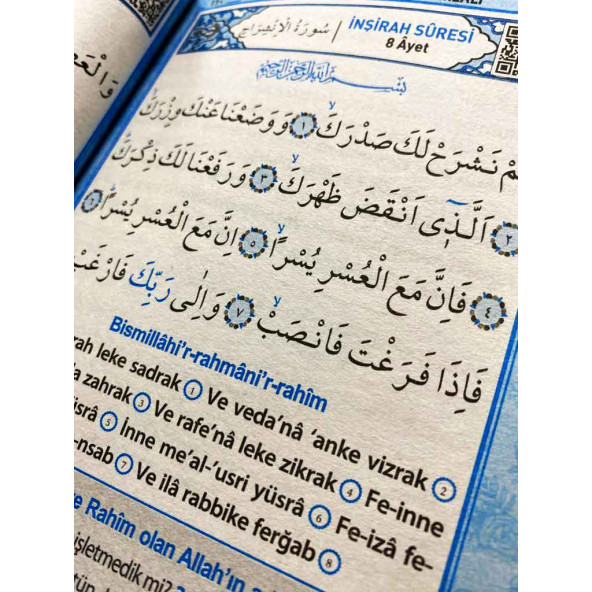 İNŞİRAH SÛRESİ
8 Âyet
سُورَةُ الْاِنْشِرَاحِ
بِسْمِ اللّٰهِ الرَّحْمٰنِ الرَّحِيمِ
نَشْرَحْ لَكَ صَدْرَكَۙ ﴿١﴾ وَوَضَعْنَا عَنْكَ وِزْرَكَۙ
﴿٢﴾ اَلَّذٓى اَنْقَضَ ظَهْرَكَۙ ﴿٣﴾ وَرَفَعْنَا لَكَ ذِكْرَكَۜ
﴿٤﴾ فَاِنَّ مَعَ الْعُسْرِ يُسْرًاۙ ﴿٥﴾ اِنَّ مَعَ الْعُسْرِ يُسْرًاۜ ﴿٦﴾
فَاِذَا فَرَغْتَ فَانْصَبْۙ ﴿٧﴾ وَاِلٰى رَبِّكَ فَارْغَبْ
Bismillâhi'r-rahmâni'r-rahîm
rah leke sadrak 1 Ve veda'nâ 'anke vizrak 2
zahrak 3 Ve rafe'nâ leke zikrak 4 Fe-inne
5 İnne me'al-'usri yüsrâ 6 Fe-izâ fe-
-nsab 7 Ve ilâ rabbike ferğab 8
Rahîm olan Allah'ın
işletmedik mi?